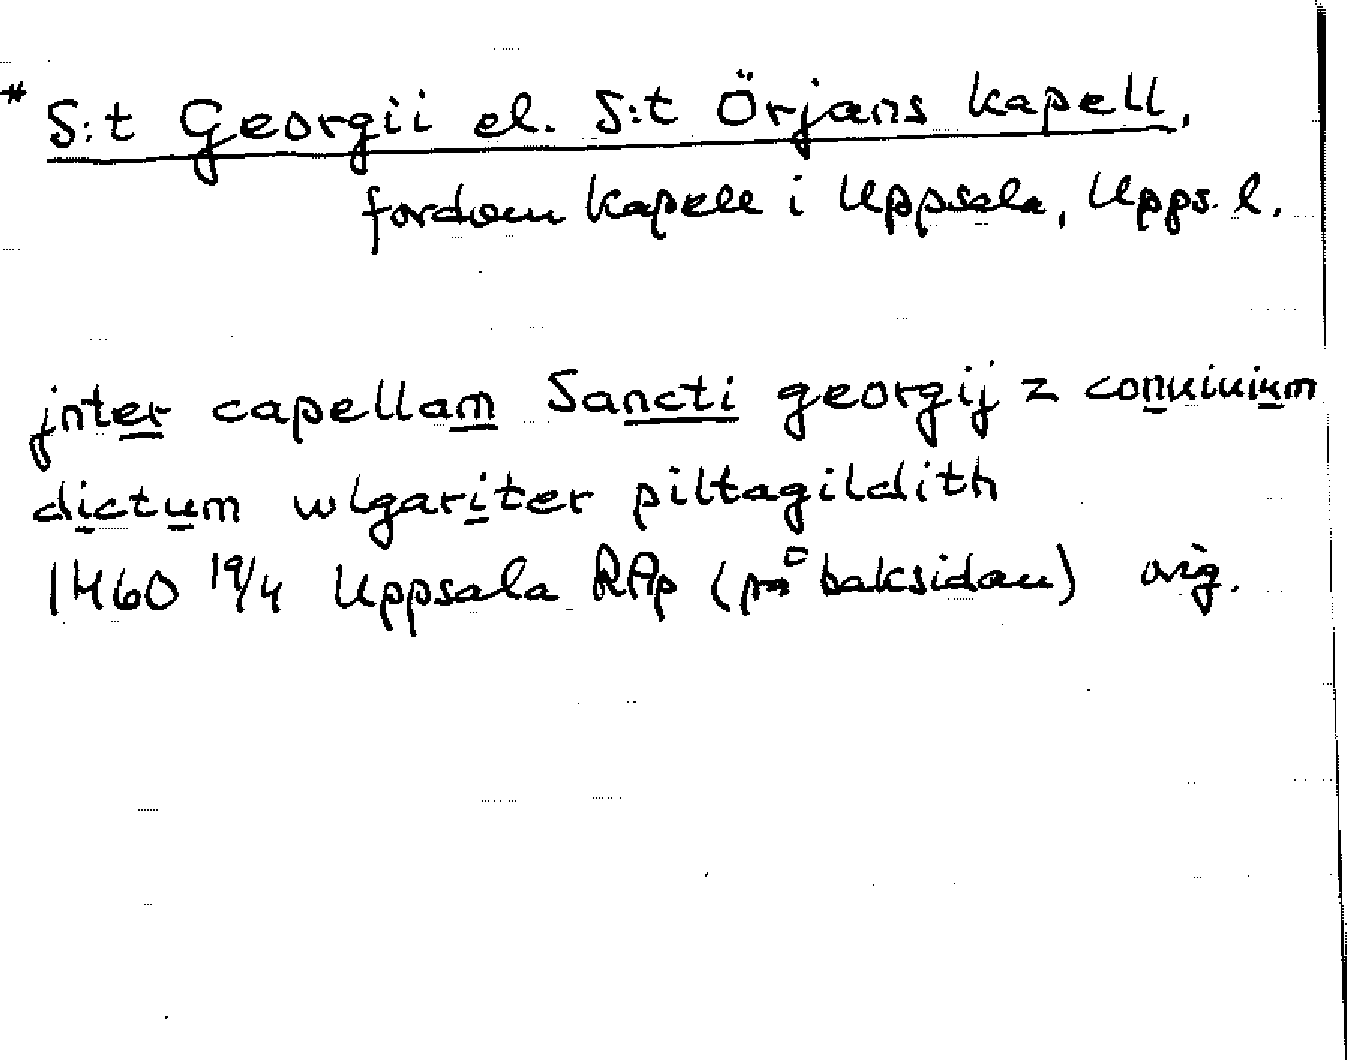 * S:t Georgii el. S:t Örjans kapell,
fordom kapell i Uppsala, Upps. l.
jnter capellam Sancti georgij z conuiuium
dictum wlgariter piltagildith
1460 19/4 Uppsala RAp (på baksidan) orig.